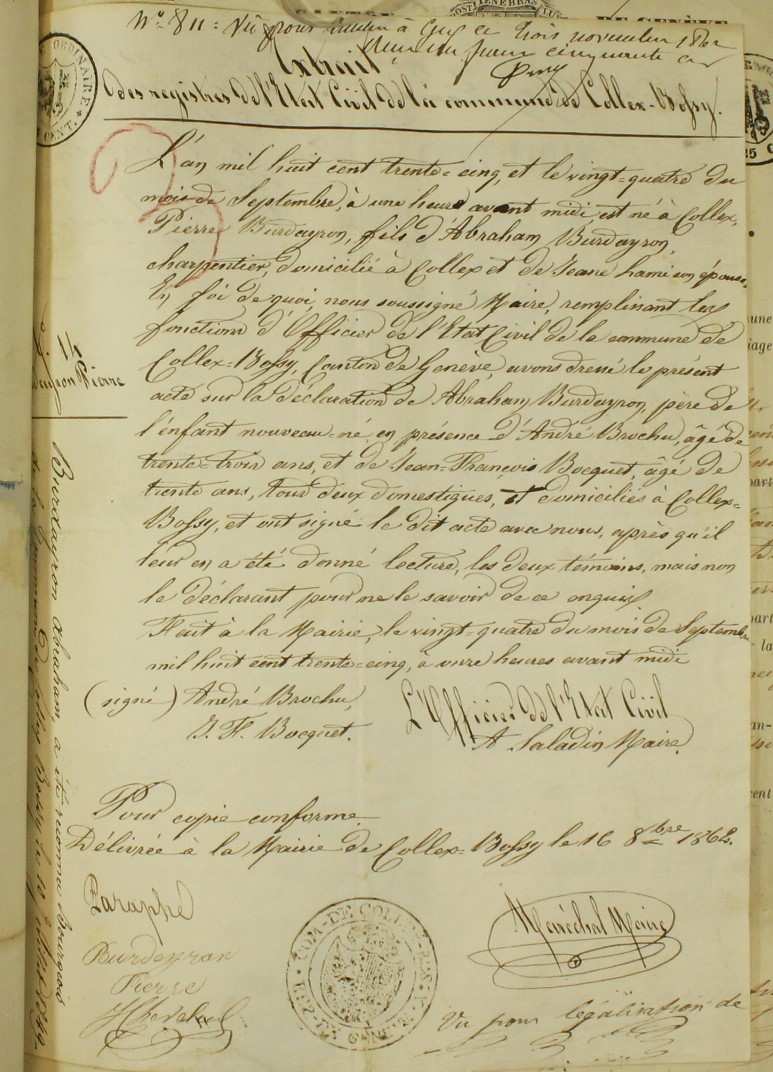 N° 811 = Vu pour timbre à Gex ce trois novembre 1862
un franc cinquante c
Extrait
des registres de l'Etat Civil de la commune de Collex-Bossy.
L'an mil huit cent trente=cinq, et le vingt=quatre du
mois de Septembre, à une heure avant midi est né à Collex,
Pierre Burdayron, fils d'Abraham Burdayron,
charpentier, domicilié à Collex et de Jeane hamé son épouse.
En foi de quoi, nous soussigné Maire, remplissant les
fonctions d'Officier de l'Etat Civil de la commune de
Collex=Bossy, Canton de Genève, avons dressé le présent
acte sur la déclaration de Abraham Burdayron, père de
l'enfant nouveau=né, en présence d'André Brochu, âgé de
trente=trois ans, et de Jean-François Bocquet, âgé de
trente ans, tous deux domestiques, et domiciliés à Collex=
Bossy, et ont signé le dit acte avec nous, après qu'il
leur en a été donné lecture, les deux témoins, mais non
le déclarant pour ne le savoir de ce enquis.
Fait à la Mairie, le vingt=quatre du mois de Septembre
mil huit cent trente=cinq, à onze heures avant midi
(signé) André Brochu,
J. F. Bocquet.
L'Officier de l'Etat Civil
A. Saladin Maire.
Pour copie conforme
Délivrée à la Mairie de Collex=Bossy le 16 8bre 1862.
Paraphé
Burdeyron
Pierre
Maréchal Maire
Vu pour légalisation de
COM. DE COLLEX
Pierre
Burdayron Abraham, a été reconnu Bourgeois
de la Commune de Collex Bossy le
ORDINAIRE
CENT.